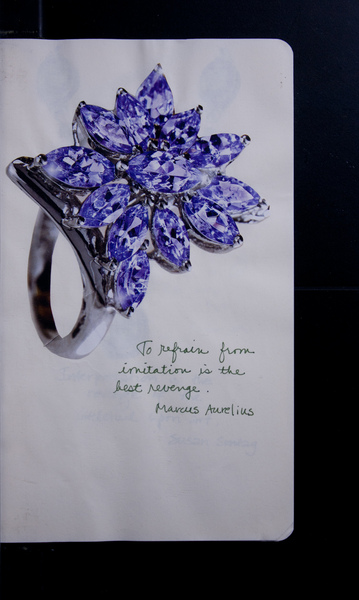 To refrain from
imitation is the
best revenge.
Marcus Aurelius